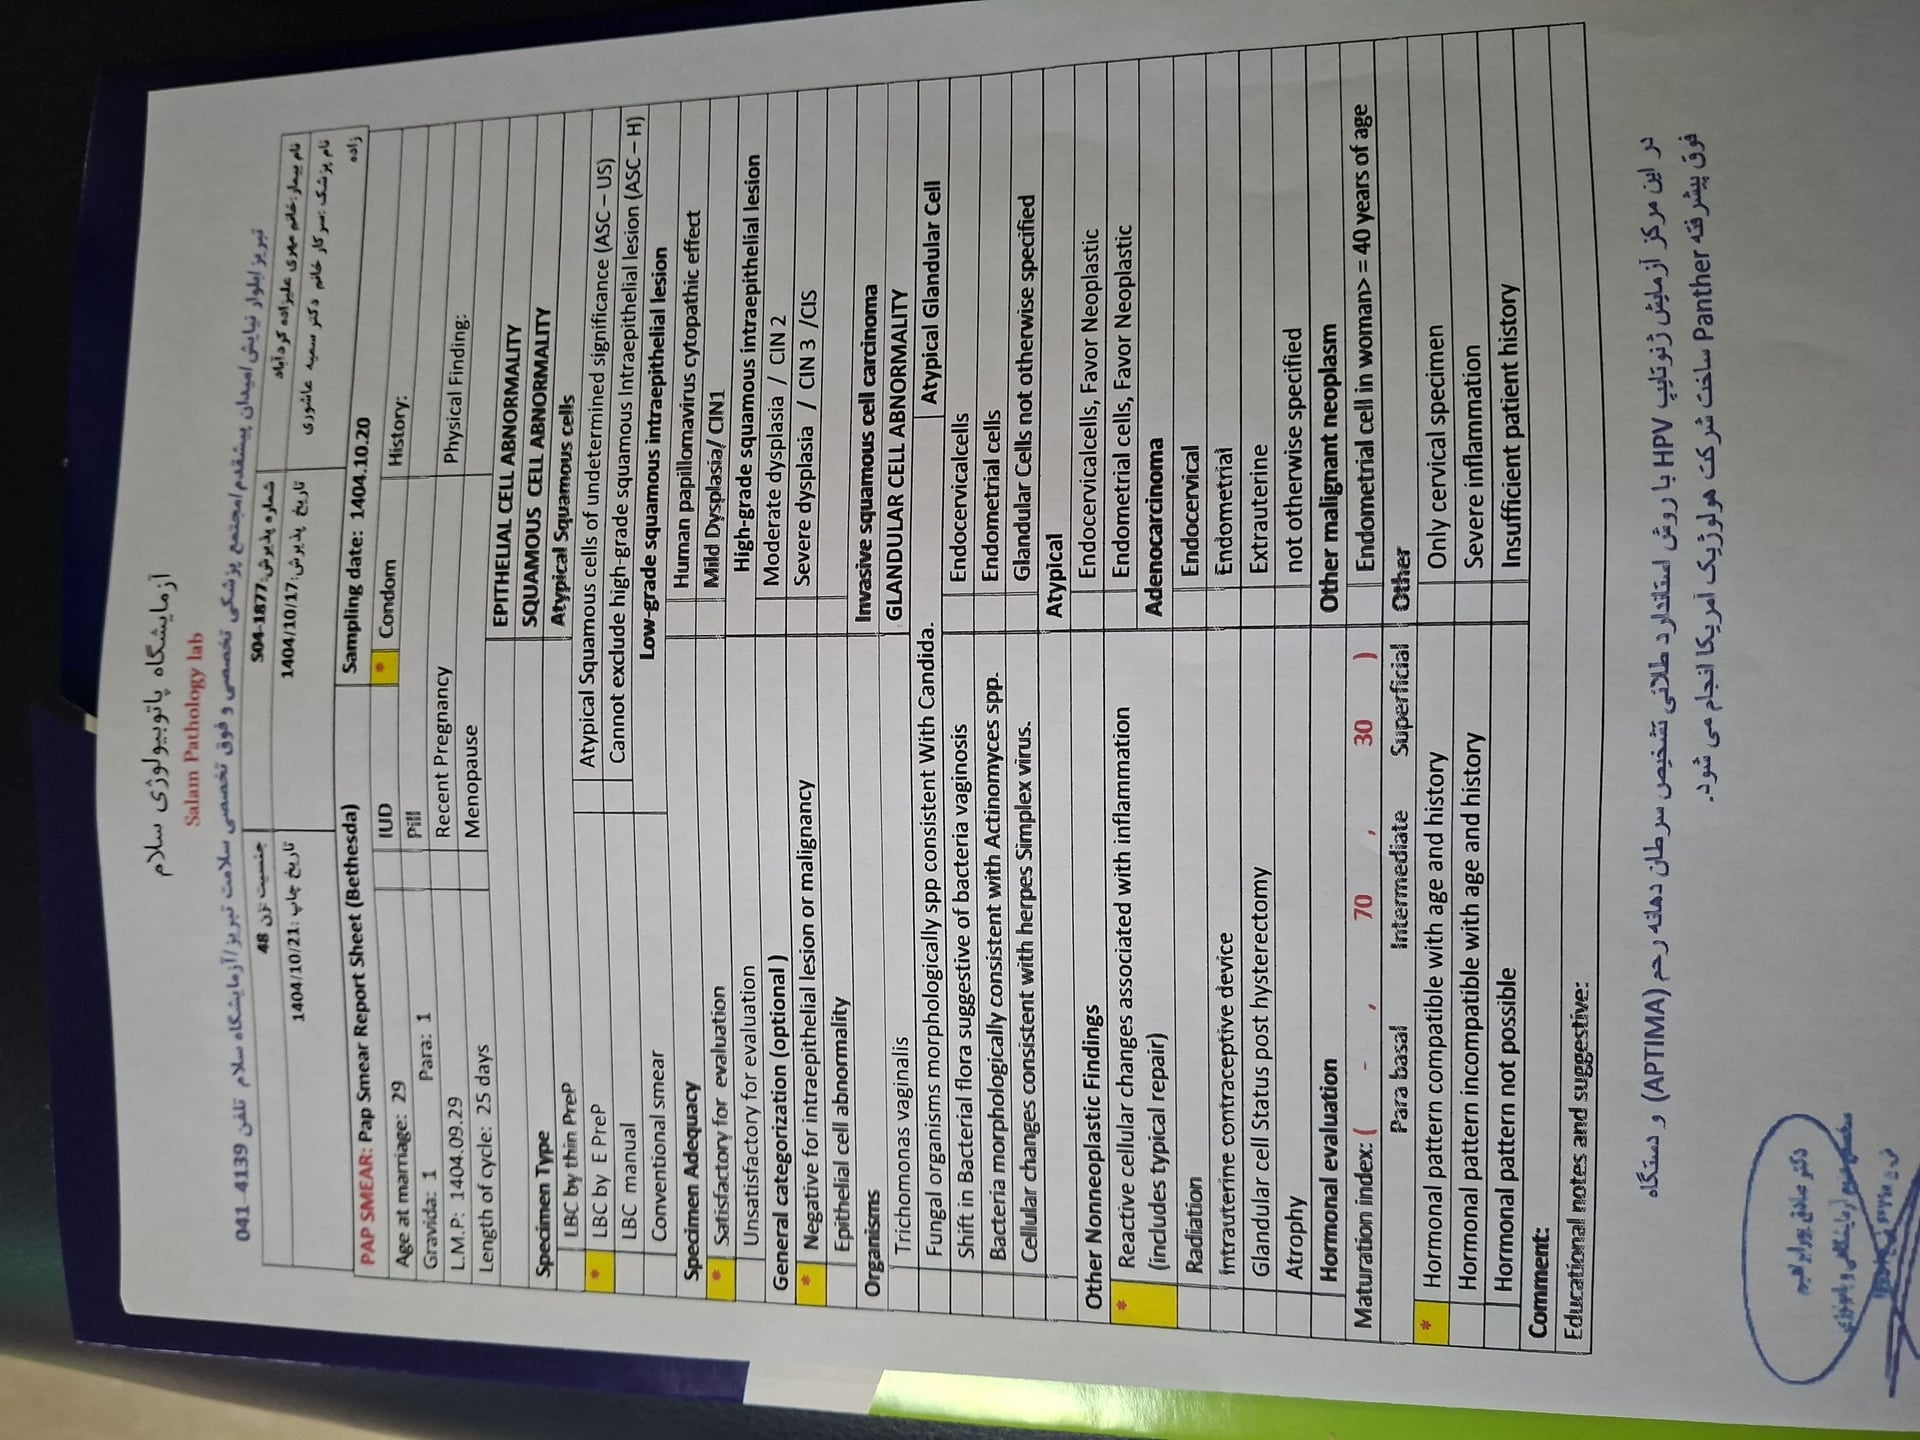 آزمایشگاه پاتوبیولوژی سلام
Salam Pathology lab
تبریز/بلوار نیایش/میدان پیشقدم/مجتمع پزشکی تخصصی و فوق تخصصی سلامت تبریز/آزمایشگاه سلام تلفن 4139-041
نام بیمار:خانم مهری علیزاده کردآباد شماره پذیرش:S04-1877 جنسیت :زن 48
نام پزشک :سرکار خانم دکتر سمیه عاشوری زاده تاریخ پذیرش:1404/10/17 تاریخ چاپ :1404/10/21
PAP SMEAR: Pap Smear Report Sheet (Bethesda) Sampling date: 1404.10.20
Age at marriage: 29 IUD * Condom History:
Gravida: 1 Para: 1 Pill
L.M.P: 1404.09.29 Recent Pregnancy Physical Finding:
Length of cycle: 25 days Menopause
EPITHELIAL CELL ABNORMALITY
SQUAMOUS CELL ABNORMALITY
Specimen Type Atypical Squamous cells
LBC by thin PreP Atypical Squamous cells of undetermined significance (ASC – US)
* LBC by E PreP Cannot exclude high-grade squamous Intraepithelial lesion (ASC – H)
LBC manual Low-grade squamous intraepithelial lesion
Conventional smear Human papillomavirus cytopathic effect
Specimen Adequacy Mild Dysplasia/ CIN1
* Satisfactory for evaluation High-grade squamous intraepithelial lesion
Unsatisfactory for evaluation Moderate dysplasia / CIN 2
General categorization (optional ) Severe dysplasia / CIN 3 /CIS
* Negative for intraepithelial lesion or malignancy
Epithelial cell abnormality Invasive squamous cell carcinoma
Organisms GLANDULAR CELL ABNORMALITY
Trichomonas vaginalis Atypical Glandular Cell
Fungal organisms morphologically spp consistent With Candida. Endocervicalcells
Shift in Bacterial flora suggestive of bacteria vaginosis Endometrial cells
Bacteria morphologically consistent with Actinomyces spp. Glandular Cells not otherwise specified
Cellular changes consistent with herpes Simplex virus. Atypical
Endocervicalcells, Favor Neoplastic
Other Nonneoplastic Findings Endometrial cells, Favor Neoplastic
* Reactive cellular changes associated with inflammation
(includes typical repair) Adenocarcinoma
Radiation Endocervical
Intrauterine contraceptive device Endometrial
Glandular cell Status post hysterectomy Extrauterine
Atrophy not otherwise specified
Hormonal evaluation Other malignant neoplasm
Maturation index: ( - , 70 , 30 ) Endometrial cell in woman> = 40 years of age
Para basal Intermediate Superficial Other
* Hormonal pattern compatible with age and history Only cervical specimen
Hormonal pattern incompatible with age and history Severe inflammation
Hormonal pattern not possible Insufficient patient history
Comment:
Educational notes and suggestive:
در این مرکز آزمایش ژنوتایپ HPV با روش استاندارد طلائی تشخیص سرطان دهانه رحم (APTIMA) و دستگاه
فوق پیشرفته Panther ساخت شرکت هولوژیک آمریکا انجام می شود.
دکتر صادق پورابراهیم